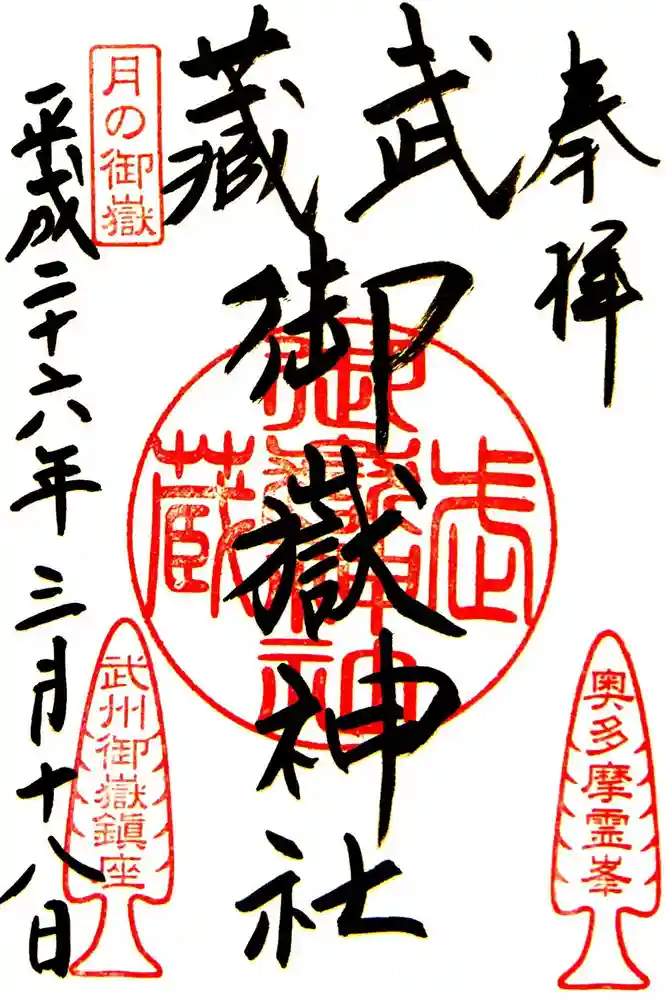 奉拝
奥多摩霊峯
武蔵
御嶽神社
武蔵御嶽神
月の御嶽
武州御嶽鎮座
平成二十六年三月十八日